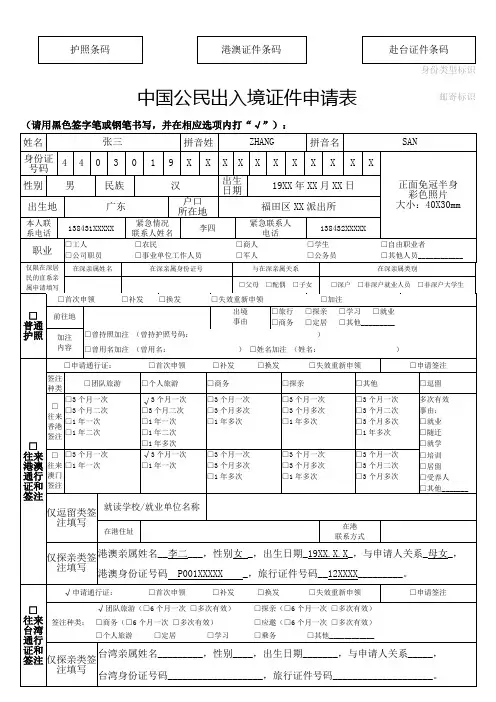 护照条码 港澳证件条码 赴台证件条码
身份类型标识
中国公民出入境证件申请表 邮寄标识
（请用黑色签字笔或钢笔书写，并在相应选项内打“√”）：
姓名 张三 拼音姓 ZHANG 拼音名 SAN
身份证号码 4 4 0 3 0 1 9 X X X X X X X X X X X
正面免冠半身
彩色照片
大小：40X30mm
性别 男 民族 汉 出生日期 19XX 年 XX 月 XX 日
出生地 广东 户口所在地 福田区 XX 派出所
本人联系电话 138431XXXXX 紧急情况联系人姓名 李四 紧急联系人电话 138432XXXXX
职业 □工人 □农民 □商人 □学生 □自由职业者
□公司职员 □事业单位工作人员 □军人 □公务员 □其他人员____________
仅限在深居民的直系亲属申请填写 在深亲属姓名 在深亲属身份证号 与在深亲属关系 在深亲属类别
□父母 □配偶 □子女 □深户 □非深户就业人员 □非深户大学生
□普通护照 □首次申领 □补发 □换发 □失效重新申领 □加注
前往地 出境事由 □旅行 □探亲 □学习 □就业
□商务 □定居 □其他_________
加注内容 □曾持照加注（曾持护照号码： ）
□曾用名加注（曾用名： ）□姓名加注（姓名： ）
□往来港澳通行证和签注 □申请通行证： □首次申领 □补发 □换发 □失效重新申领 □申请签注
签注种类 □团队旅游 □个人旅游 □商务 □探亲 □其他 □逗留
□往来香港签注 □3 个月一次 √3 个月一次 □3 个月一次 □3 个月一次 □3 个月一次 多次有效
□3 个月二次 □3 个月二次 □3 个月多次 □3 个月多次 □3 个月二次 事由：
□1 年一次 □1 年一次 □1 年多次 □1 年多次 □3 个月多次 □就业
□1 年二次 □1 年二次 □1 年多次 □随迁
□1 年多次 □就学
□往来澳门签注 □3 个月一次 √3 个月一次 □3 个月一次 □3 个月一次 □3 个月一次 □培训
□1 年一次 □1 年一次 □3 个月多次 □3 个月多次 □3 个月二次 □居留
□1 年多次 □1 年多次 □3 个月多次 □受养人
□其他_______
仅逗留类签注填写 就读学校/就业单位名称
在港住址 在港联系方式
仅探亲类签注填写 港澳亲属姓名__李二___，性别_女_，出生日期_19XX.X.X_，与申请人关系_母女_，
港澳身份证号码__P001XXXXX___，旅行证件号码__12XXXX_________。
□往来台湾通行证和签注 √申请通行证： □首次申领 □补发 □换发 □失效重新申领 □申请签注
签注种类： √团队旅游（□6 个月一次 □多次有效） □探亲（□6 个月一次 □多次有效）
□商务（□6 个月一次 □多次有效） □应邀（□6 个月一次 □多次有效）
□个人旅游 □定居 □学习 □乘务 □其他____________
仅探亲类签注填写 台湾亲属姓名_________，性别____，出生日期_______，与申请人关系_____，
台湾身份证号码___________________，旅行证件号码____________________。